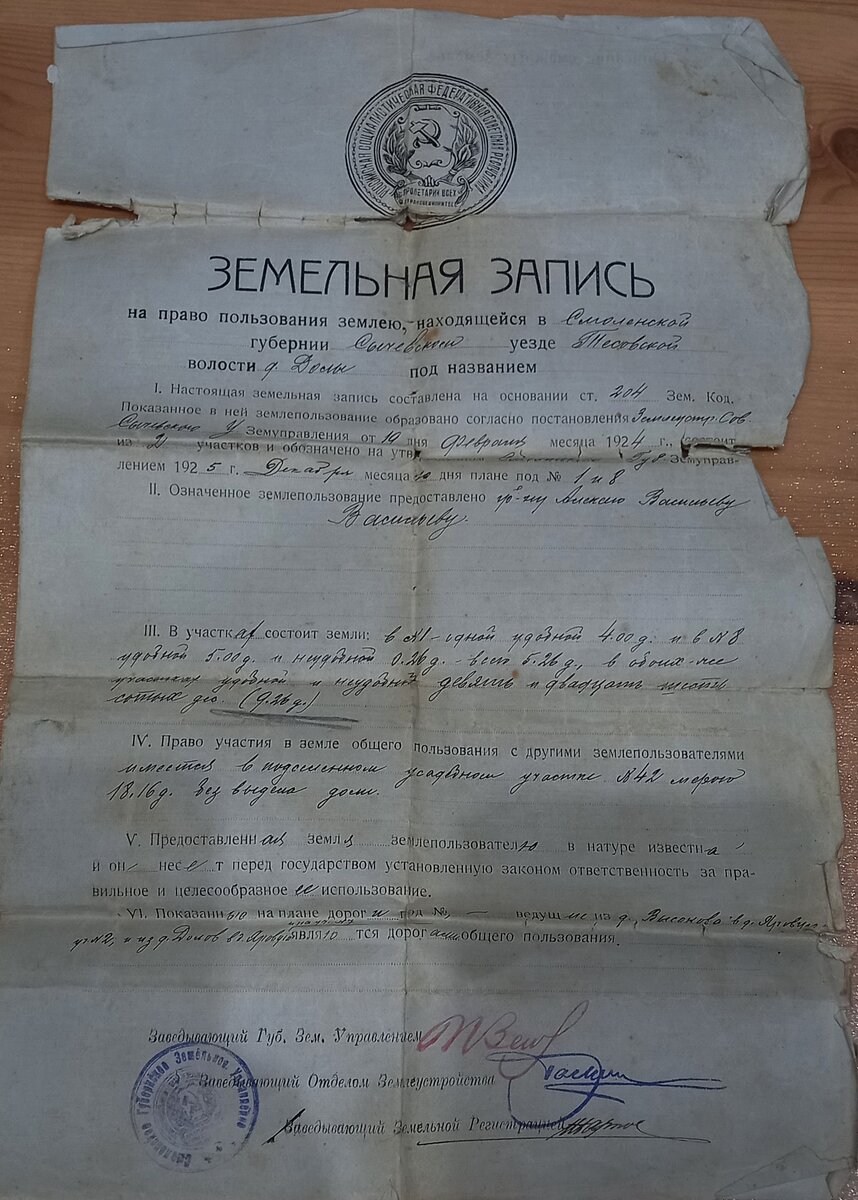 РОССИЙСКАЯ СОЦИАЛИСТИЧЕСКАЯ ФЕДЕРАТИВНАЯ СОВЕТСКАЯ РЕСПУБЛИКА
ПРОЛЕТАРИИ ВСЕХ
СТРАН СОЕДИНЯЙТЕСЬ
ЗЕМЕЛЬНАЯ ЗАПИСЬ
на право пользования землею, находящейся в Смоленской
губернии Сычевском уезде Тесовской
волости д. Долы под названием
I. Настоящая земельная запись составлена на основании ст. 204 Зем. Код.
Показанное в ней землепользование образовано согласно постановления Землеустр. Сов.
Сычевского У Земуправления от 19 дня февраля месяца 1924 г., состоит
из 2 участков и обозначено на утв Губ Земуправ-
лением 1925 г. Декабря месяца 10 дня плане под № 1 и 8
II. Означенное землепользование предоставлено гр-ну Алексею Васильеву
Васильеву.
III. В участках состоит земли: в №1 - одной удобной 4.00 д. и в №8
удобной 5.00 д. и неудобной 0.26 д. - всего 5.26 д., в обоих-же
участках удобной и неудобной девять и двадцать шесть
сотых дес (9.26 д.)
IV. Право участия в земле общего пользования с другими землепользователями
имеется в подселенном усадебном участке №42 мерою
18.16 д. без выдела доли.
V. Предоставленная земля землепользователю в натуре известна
и он несет перед государством установленную законом ответственность за пра-
вильное и целесообразное ее использование.
VI. Показанные на плане дороги под № — ведущие из д. Высокова в д. Яровую
уч №2, и из д. Долов в д. Яровую являются дорогами общего пользования.
Заведывающий Губ. Зем. Управлением
Заведывающий Отделом Землеустройства
Заведывающий Земельной Регистрацией
Смоленское Губернское Земельное Управление